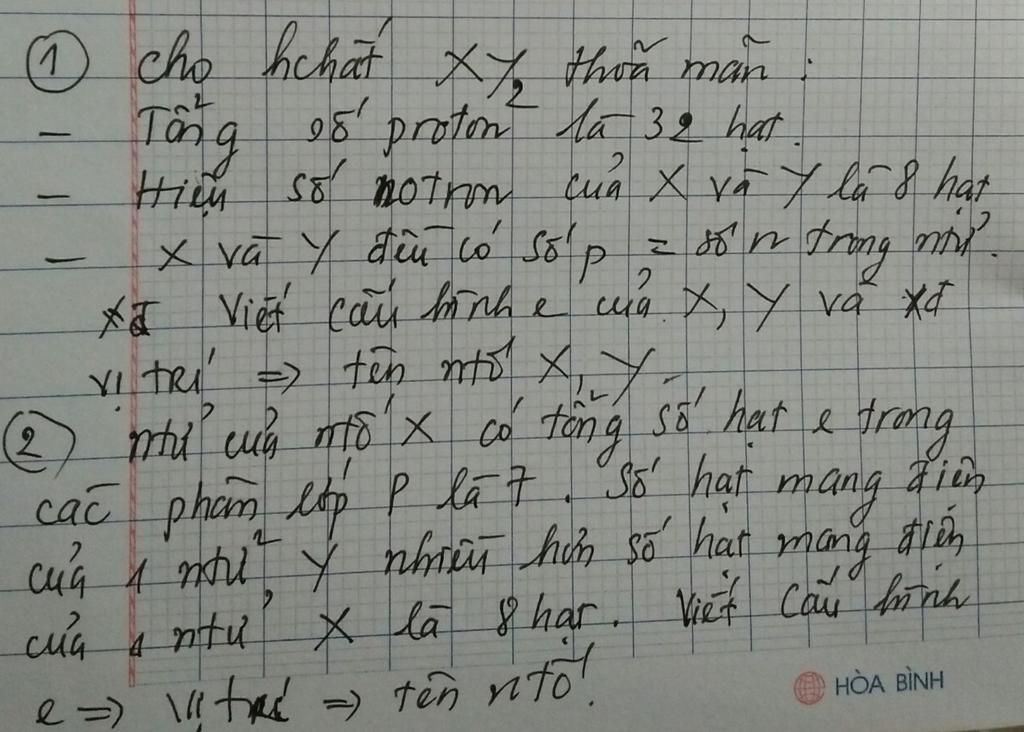 ① cho hchất XY₂ thoã mãn :
- Tổng số proton là 32 hạt.
- Hiệu số notron của X và Y là 8 hạt
- X và Y đều có số p = số n trong ntử.
Viết cấu hình e của X, Y và xđ
vị trí => tên ntố X, Y
② ntử của ntố X có tổng số hạt e trong
các phân lớp P là 7. Số hạt mang điện
của 1 ntử Y nhiều hơn số hạt mang điện
của 1 ntử X là 8 hạt. Viết cấu hình
e => vị trí => tên ntố.
HÒA BÌNH